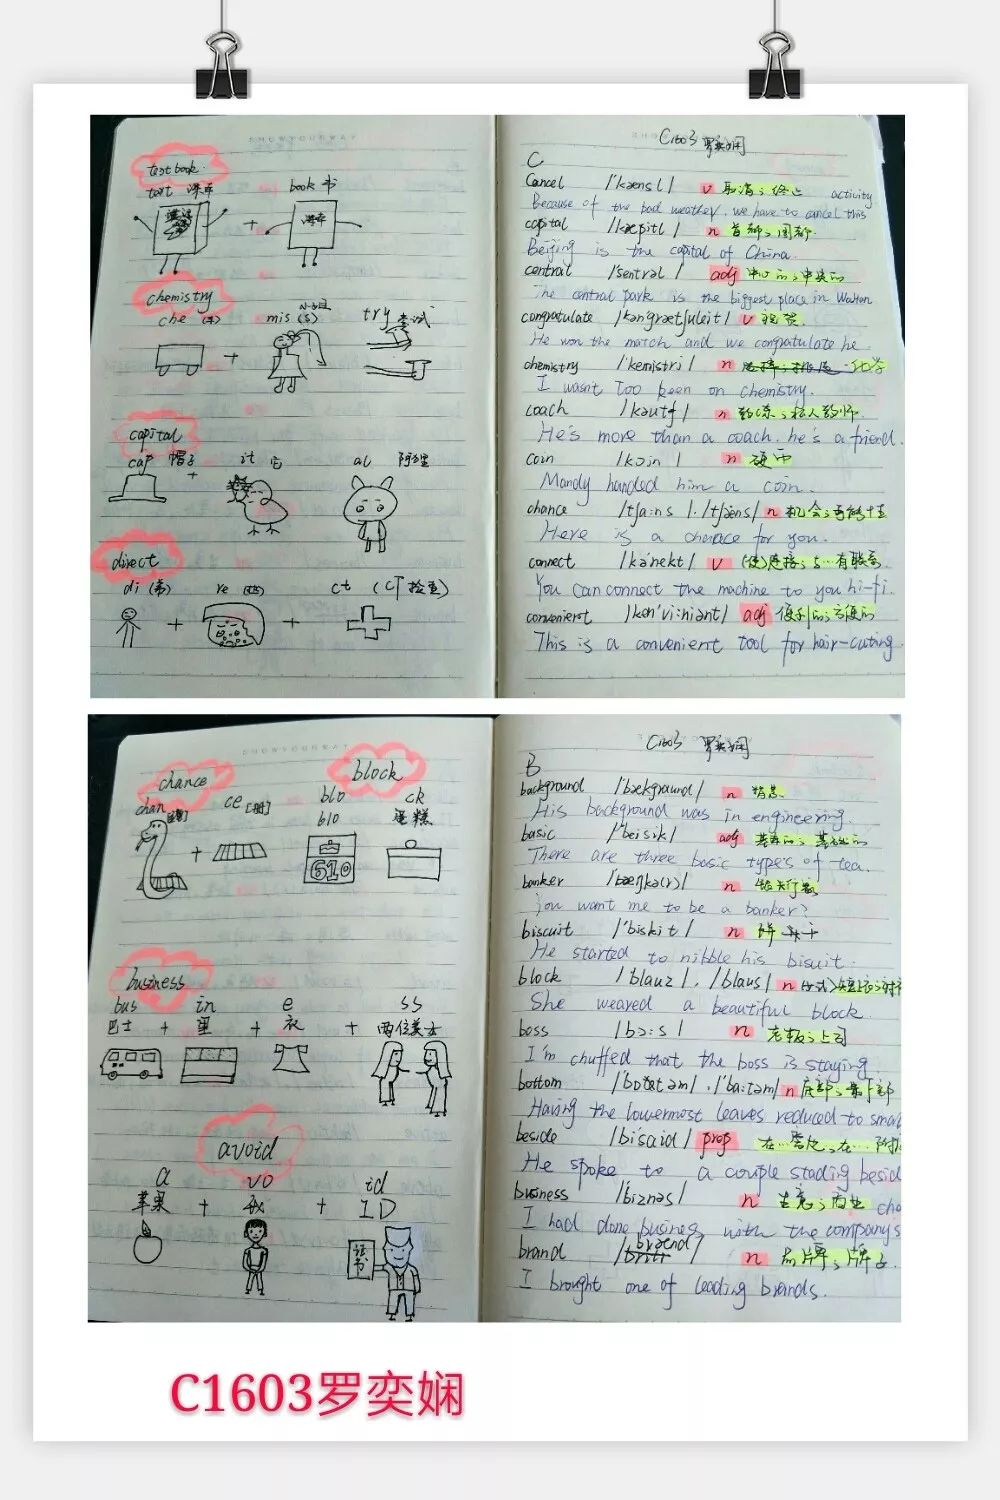 SHOWYOURWAY
textbook.
text 课本 book 书
+
chemistry
che (车) mis (S) 小姐 try 尝试
+
capital
cap 帽子 it 它 al 阿狸
+
direct
di (弟) re ct (CT检查)
+ +
C1603 罗奕娴
C
Cancel v 取消;终止 activity
Because of the bad weather, we have to cancel this
capital n 首都;国都.
Beijing is the capital of China.
central /'sentrəl/ adj 中心的;中央的
The central park is the biggest place in Wuhan
congratulate v 祝贺.
He won the match and we congratulate he.
chemistry /'kemistri/ n 化学
I wasn't too keen on chemistry.
coach n 教练;私人教师
He's more than a coach. he's a friend.
coin /kɔin/ n 硬币
Mandy handed him a coin.
chance n 机会;可能性
Here is a chance for you.
connect /kə'nekt/ v (使)连接;与…有联系
You can connect the machine to you hi-fi.
convenient /kən'vi:niənt/ adj 便利的;方便的
This is a convenient tool for hair-cutting.
SHOWYOURWAY
chance block
chan ce blo ck
blo 蛋糕
+
610
business
bus in e ss
巴士 + 里 + 衣 + 两位美女
avoid
a vo id
苹果 + 我 + ID
证书
C1603 罗奕娴
B
background n 背景.
His background was in engineering.
basic /'beisik/ adj 基本的;基础的
There are three basic types of tea.
banker n 银行家
You want me to be a banker?
biscuit /'biskit/ n 饼干
He started to nibble his bisuit.
block n
She weaved a beautiful block.
boss /bɔ:s/ n 老板;上司
I'm chuffed that the boss is staying
bottom n 底部;最下部
Having the lowermost leaves reduced to small
beside /bisaid/ prep 在…旁边;在…附
He spoke to a couple stading besid
business /'biznəs/ n 生意;商业
I had done busines with the company's
brand n 品牌;牌子.
I brought one of leading brands.
C1603罗奕娴